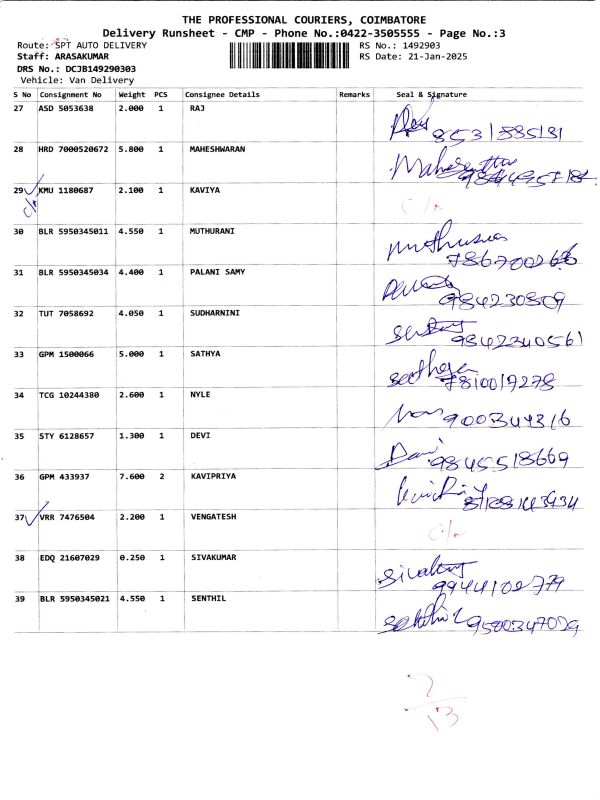 THE PROFESSIONAL COURIERS, COIMBATORE
Delivery Runsheet - CMP - Phone No.:0422-3505555 - Page No.:3
Route: SPT AUTO DELIVERY
RS No.: 1492903
Staff: ARASAKUMAR
RS Date: 21-Jan-2025
DRS No.: DCJB149290303
Vehicle: Van Delivery
S No Consignment No Weight PCS Consignee Details Remarks Seal & Signature
27 ASD 5053638 2.000 1 RAJ
28 HRD 7000520672 5.800 1 MAHESHWARAN
29 KMU 1180687 2.100 1 KAVIYA
30 BLR 5950345011 4.550 1 MUTHURANI
31 BLR 5950345034 4.400 1 PALANI SAMY
984230809
32 TUT 7058692 4.050 1 SUDHARNINI
9842340561
33 GPM 1500066 5.000 1 SATHYA
7810019278
34 TCG 10244380 2.600 1 NYLE
900344316
35 STY 6128657 1.300 1 DEVI
9845518669
36 GPM 433937 7.600 2 KAVIPRIYA
37 VRR 7476504 2.200 1 VENGATESH
38 EDQ 21607029 0.250 1 SIVAKUMAR
9944102779
39 BLR 5950345021 4.550 1 SENTHIL
9580347029
13